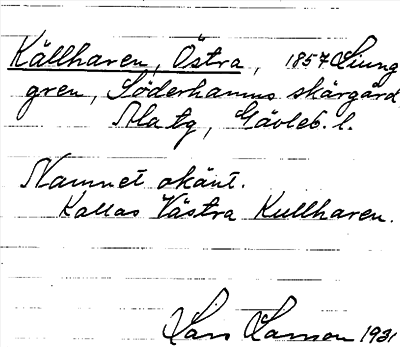 Källharen, Östra, 1857 Ljung
gren, Söderhamns skärgård
Ala tg, Gävleb. l.
Namnet okänt.
Kallas Västra Kullharen.
Lars Larsson 1931